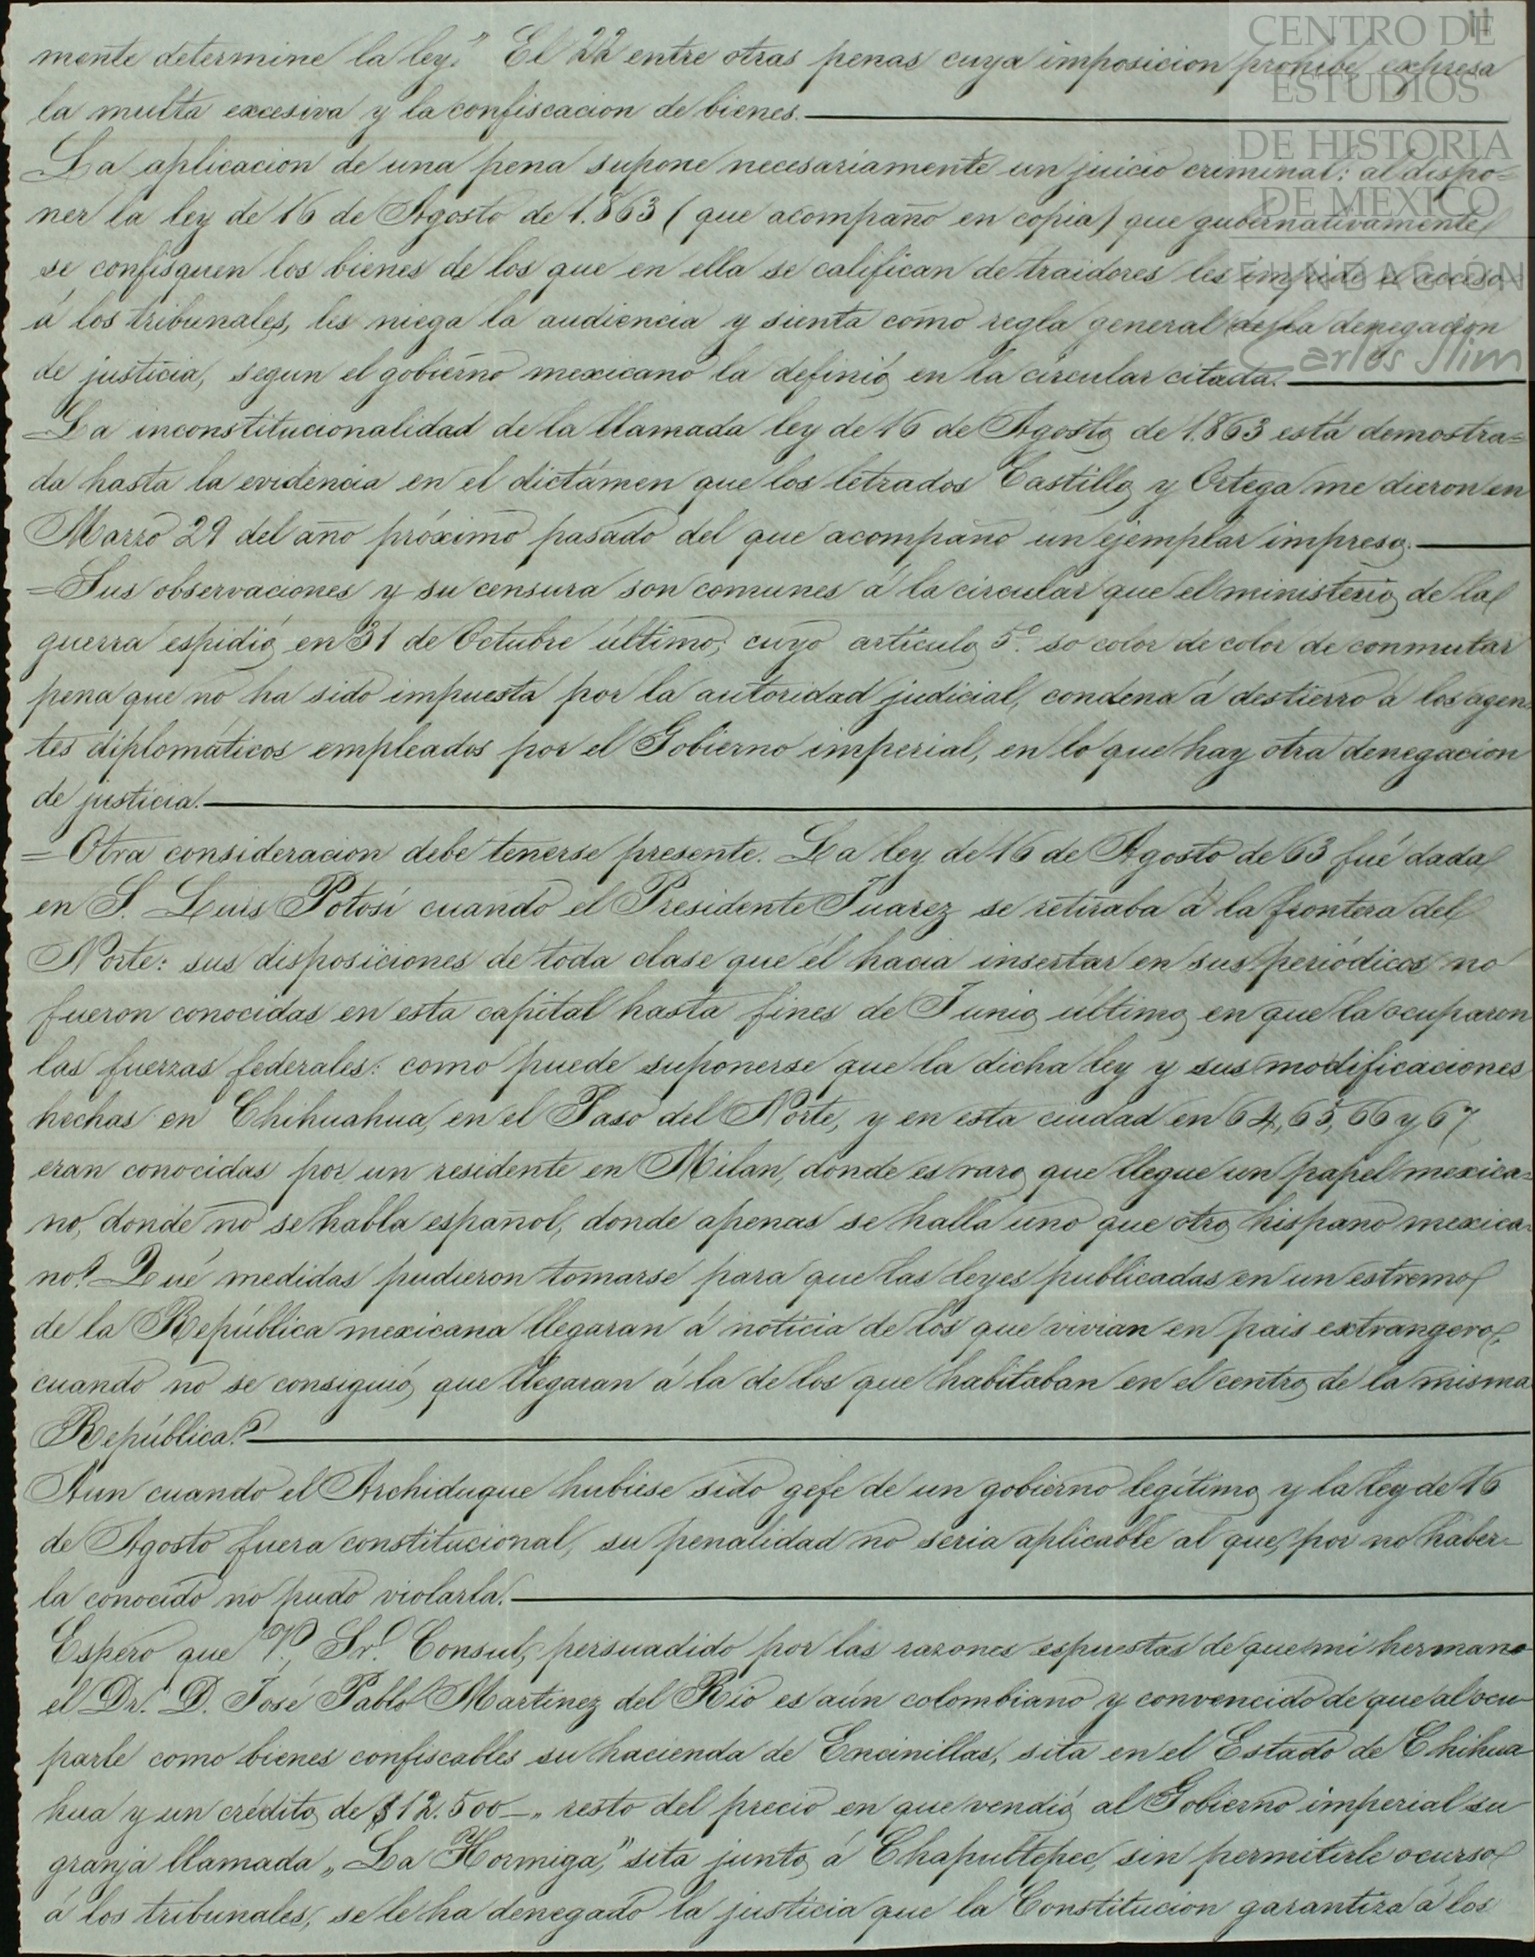 11
CENTRO DE
ESTUDIOS
DE HISTORIA
DE MEXICO
FUNDACIÓN
Carlos Slim
mente determine la ley." El 22 entre otras penas cuya imposicion prohibe, expresa
la multa excesiva y la confiscacion de bienes.
La aplicacion de una pena supone necesariamente un juicio criminal: al dispo-
ner la ley de 16 de Agosto de 1.863 (que acompaño en copia) que gubernativamente
se confisquen los bienes de los que en ella se califican de traidores les impide el acceso
á los tribunales, les niega la audiencia y sienta como regla general la denegacion
de justicia, segun el gobierno mexicano la definió en la circular citada.
La inconstitucionalidad de la llamada ley de 16 de Agosto de 1.863 está demostra=
da hasta la evidencia en el dictámen que los letrados Castillo y Ortega me dieron en
Marzo 29 del año próximo pasado del que acompaño un ejemplar impreso.
=Sus observaciones y su censura son comunes á la circular que el ministerio de la
guerra espidió en 31 de Octubre último; cuyo artículo 5º. so color de color de conmutar
pena que no ha sido impuesta por la autoridad judicial, condena á destierro á los agen-
tes diplomáticos empleados por el Gobierno imperial, en lo que hay otra denegacion
de justicia.
=Otra consideracion debe tenerse presente. La ley de 16 de Agosto de 63 fué dada
en S. Luis Potosí cuando el Presidente Juarez se retiraba á la frontera del
Norte: sus disposiciones de toda clase que él hacia insertar en sus periódicos no
fueron conocidas en esta capital hasta fines de Junio último en que la ocuparon
las fuerzas federales: como puede suponerse que la dicha ley y sus modificaciones
hechas en Chihuahua, en el Paso del Norte, y en esta ciudad en 64, 65, 66 y 67
eran conocidas por un residente en Milan, donde es raro que llegue un papel mexica=
no, donde no se habla español, donde apenas se halla uno que otro hispano mexica-
no? Qué medidas pudieron tomarse para que las leyes publicadas en un estremo
de la República mexicana llegaran á noticia de los que vivian en pais extrangero,
cuando no se consiguió que llegaran á la de los que habitaban en el centro de la misma
República?
Aun cuando el Archiduque hubiese sido gefe de un gobierno legítimo y la ley de 16
de Agosto fuera constitucional, su penalidad no seria aplicable al que, por no haber-
la conocido no pudo violarla.
Espero que V., Sr. Consul, persuadido por las razones espuestas de que mi hermano
el Dr. D. José Pablo Martinez del Rio es aún colombiano y convencido de que al ocu-
parle como bienes confiscables su hacienda de Encinillas, sita en el Estado de Chihua-
hua y un crédito de $12.500_,, resto del precio en que vendió al Gobierno imperial su
granja llamada „La Hormiga," sita junto á Chapultepec, sin permitirle ocurso
á los tribunales, se le ha denegado la justicia que la Constitucion garantiza á los